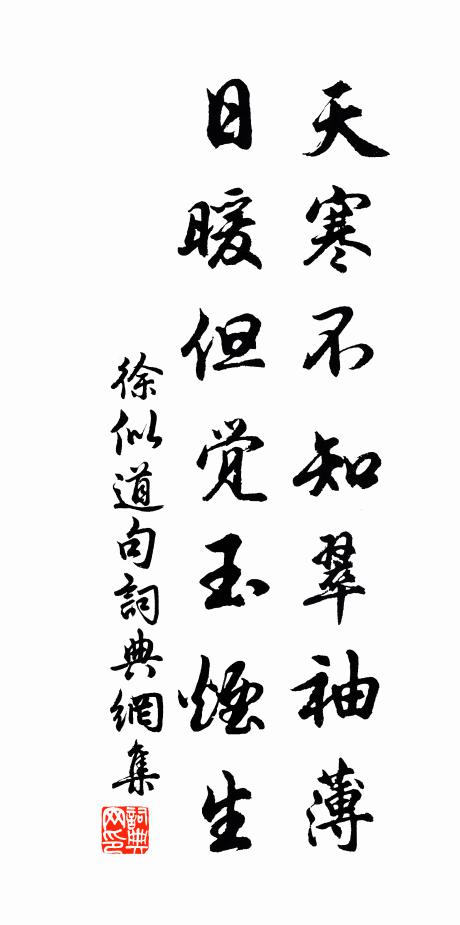 天寒不知翠袖薄
日暖但觉玉煙生
徐似道句詞典網集
詞典网印